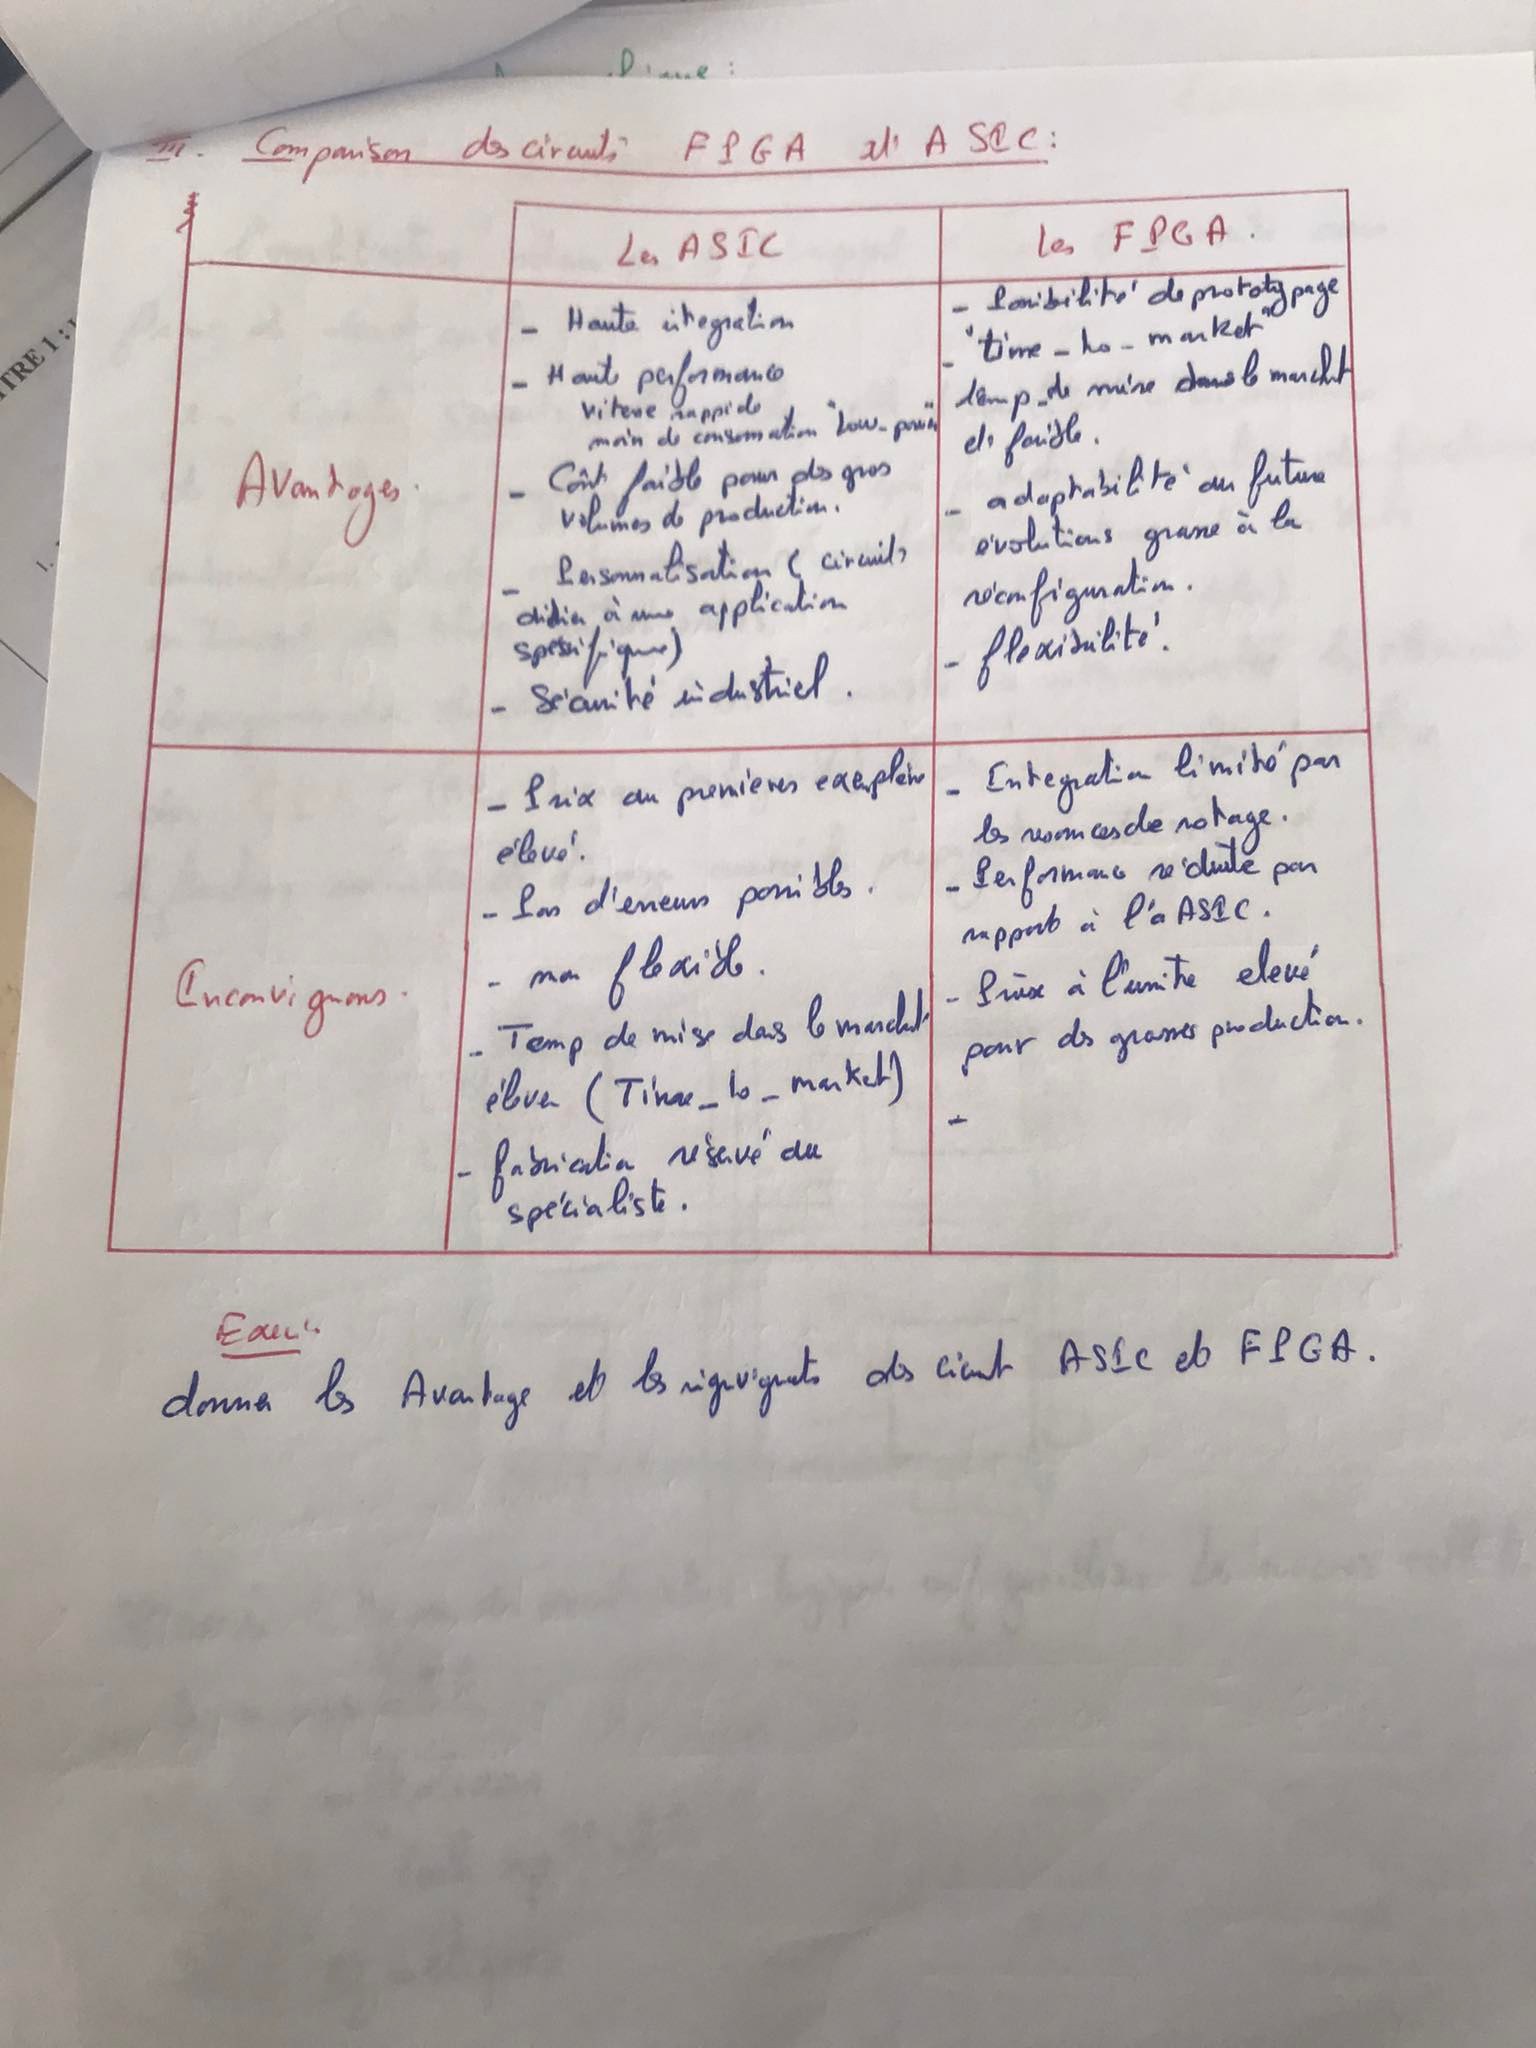 III. Comparison des circuits FPGA et ASIC:
Les ASIC
Les FPGA.
Avantages.
- Haute integration
- Haute performance
vitesse rappide
moin de consomation "Low-power"
- Coût faible pour des gros
volumes de production.
- Personnalisation ( circuits
didier à une application
spésifique)
- Sécurité industriel.
- Possibilité de prototypage
- "time-to-market"
temp de mise dans le marchet
et faible.
- adaptabilité au future
évolutions grasse à la
réconfiguration.
- flexibilité.
Inconvignons.
- Prix au premieres exemplaire
élevé.
- Pas d'erreurs possibles.
- non flexible.
- Temp de mise dans le marchet
élever (Time_to_market)
- fabrication réservé au
spécialiste.
- Integration limité par
les resources de rotage.
- Performance réduite par
rapport à l'a ASIC.
- Prix à l'unite elevé
pour des grosses production.
-
donner les Avantage et les des ASIC et FPGA.
ITRE 1 :
1.